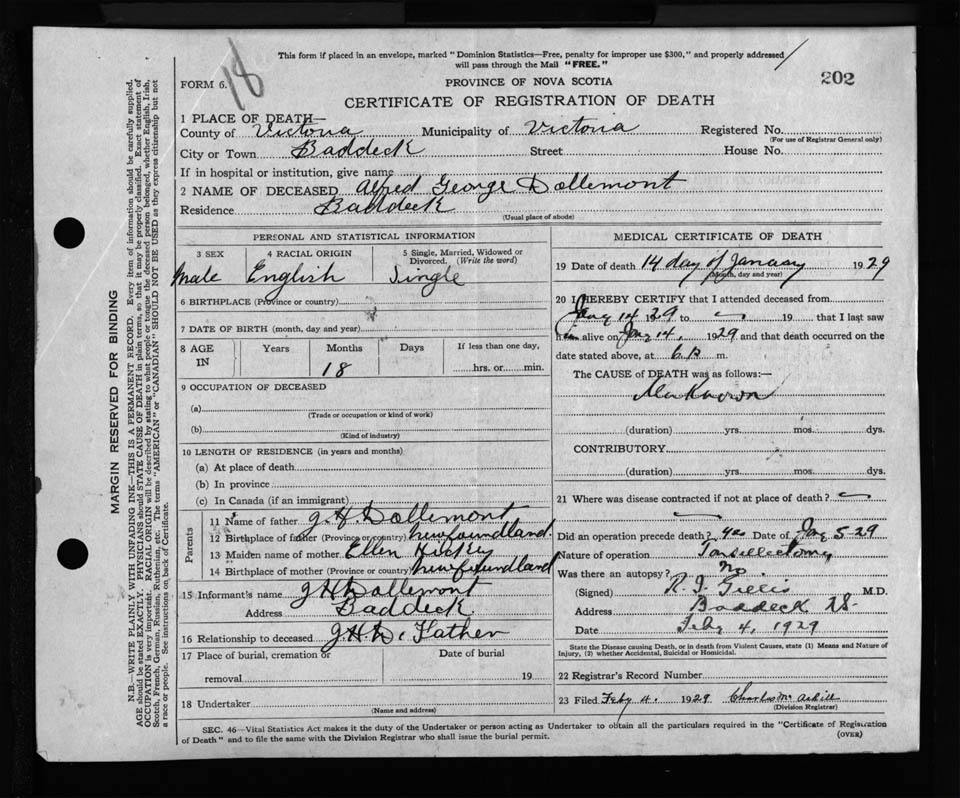 This form if placed in an envelope, marked "Dominion Statistics—Free, penalty for improper use $300," and properly addressed
will pass through the Mail "FREE."
18
202
FORM 6.
PROVINCE OF NOVA SCOTIA
CERTIFICATE OF REGISTRATION OF DEATH
1 PLACE OF DEATH—
County of Victoria Municipality of Victoria Registered No.
(For use of Registrar General only)
City or Town Baddeck Street House No.
If in hospital or institution, give name
2 NAME OF DECEASED Alfred George Dollemont
Residence Baddeck
(Usual place of abode)
PERSONAL AND STATISTICAL INFORMATION
3 SEX 4 RACIAL ORIGIN 5 Single, Married, Widowed or
Divorced. (Write the word)
Male English Single
6 BIRTHPLACE (Province or country)
7 DATE OF BIRTH (month, day and year)
8 AGE IN Years Months Days If less than one day,
18 hrs. or min.
9 OCCUPATION OF DECEASED
(a)
(Trade or occupation or kind of work)
(b)
(Kind of industry)
10 LENGTH OF RESIDENCE (in years and months)
(a) At place of death
(b) In province
(c) In Canada (if an immigrant)
Parents
11 Name of father J. H. Dollemont
12 Birthplace of father (Province or country) Newfoundland.
13 Maiden name of mother Ellen
14 Birthplace of mother (Province or country) Newfoundland
15 Informant's name J H Dollemont
Address Baddeck.
16 Relationship to deceased J.H.D. Father
17 Place of burial, cremation or Date of burial
removal 19
18 Undertaker
(Name and address)
MEDICAL CERTIFICATE OF DEATH
19 Date of death 14 day of January 1929
(Month, day and year)
20 I HEREBY CERTIFY that I attended deceased from
Jany 14 1929 to 19 that I last saw
him alive on Jany 14, 1929 and that death occurred on the
date stated above, at 6 m.
The CAUSE of DEATH was as follows:—
Unknown
(duration) yrs. mos. dys.
CONTRIBUTORY
(duration) yrs. mos. dys.
21 Where was disease contracted if not at place of death?
Did an operation precede death? Yes Date of Jany 5-29
Nature of operation Tonsillectomy
Was there an autopsy? No.
(Signed) R. J. Gillis M.D.
Address Baddeck N.S.
Date Feby 4, 1929
State the Disease causing Death, or in death from Violent Causes, state (1) Means and Nature of
Injury, (2) whether Accidental, Suicidal or Homicidal.
22 Registrar's Record Number
23 Filed Feby 4. 1929 Charles
(Division Registrar)
SEC. 46—Vital Statistics Act makes it the duty of the Undertaker or person acting as Undertaker to obtain all the particulars required in the "Certificate of Registration
of Death" and to file the same with the Division Registrar who shall issue the burial permit.
(OVER)
MARGIN RESERVED FOR BINDING
N.B.—WRITE PLAINLY WITH UNFADING INK—THIS IS A PERMANENT RECORD. Every item of information should be carefully supplied.
AGE should be stated EXACTLY. PHYSICIANS should STATE CAUSE OF DEATH in plain terms, so that it may be properly classified. Exact statement of
OCCUPATION is very important. RACIAL ORIGIN will be described by stating to what people or tongue the deceased person belonged, whether English, Irish,
Scotch, French, German, Russian, Ruthenian, etc. The terms "AMERICAN" or "CANADIAN" SHOULD NOT BE USED as they express citizenship but not
a race or people. See instructions on back of Certificate.